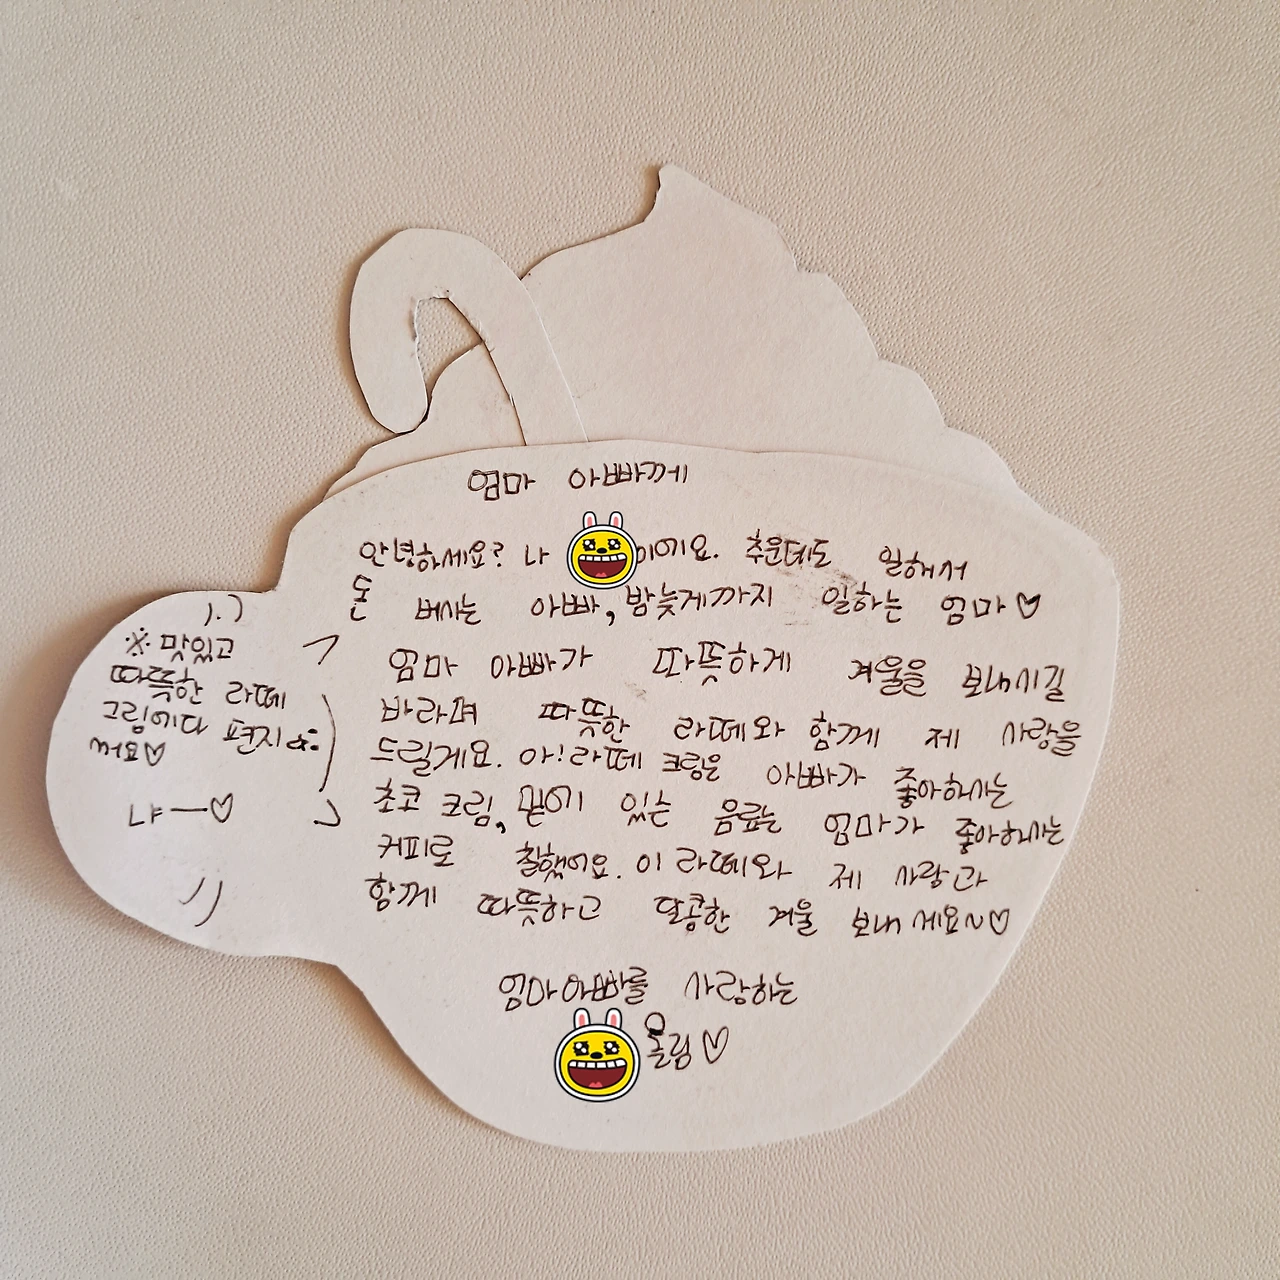 엄마 아빠께
안녕하세요? 나 이에요. 추운데도 일해서
돈 버시는 아빠, 밤늦게까지 일하는 엄마♡
엄마 아빠가 따뜻하게 겨울을 보내시길
바라며 따뜻한 라떼와 함께 제 사랑을
드릴게요. 아! 라떼 크림은 아빠가 좋아하시는
초코 크림, 밑에 있는 음료는 엄마가 좋아하시는
커피로 칠했어요. 이 라떼와 제 사랑과
함께 따뜻하고 달콤한 겨울 보내세요~♡
엄마아빠를 사랑하는
올림♡
※맛있고
따뜻한 라떼
그림이다 편지